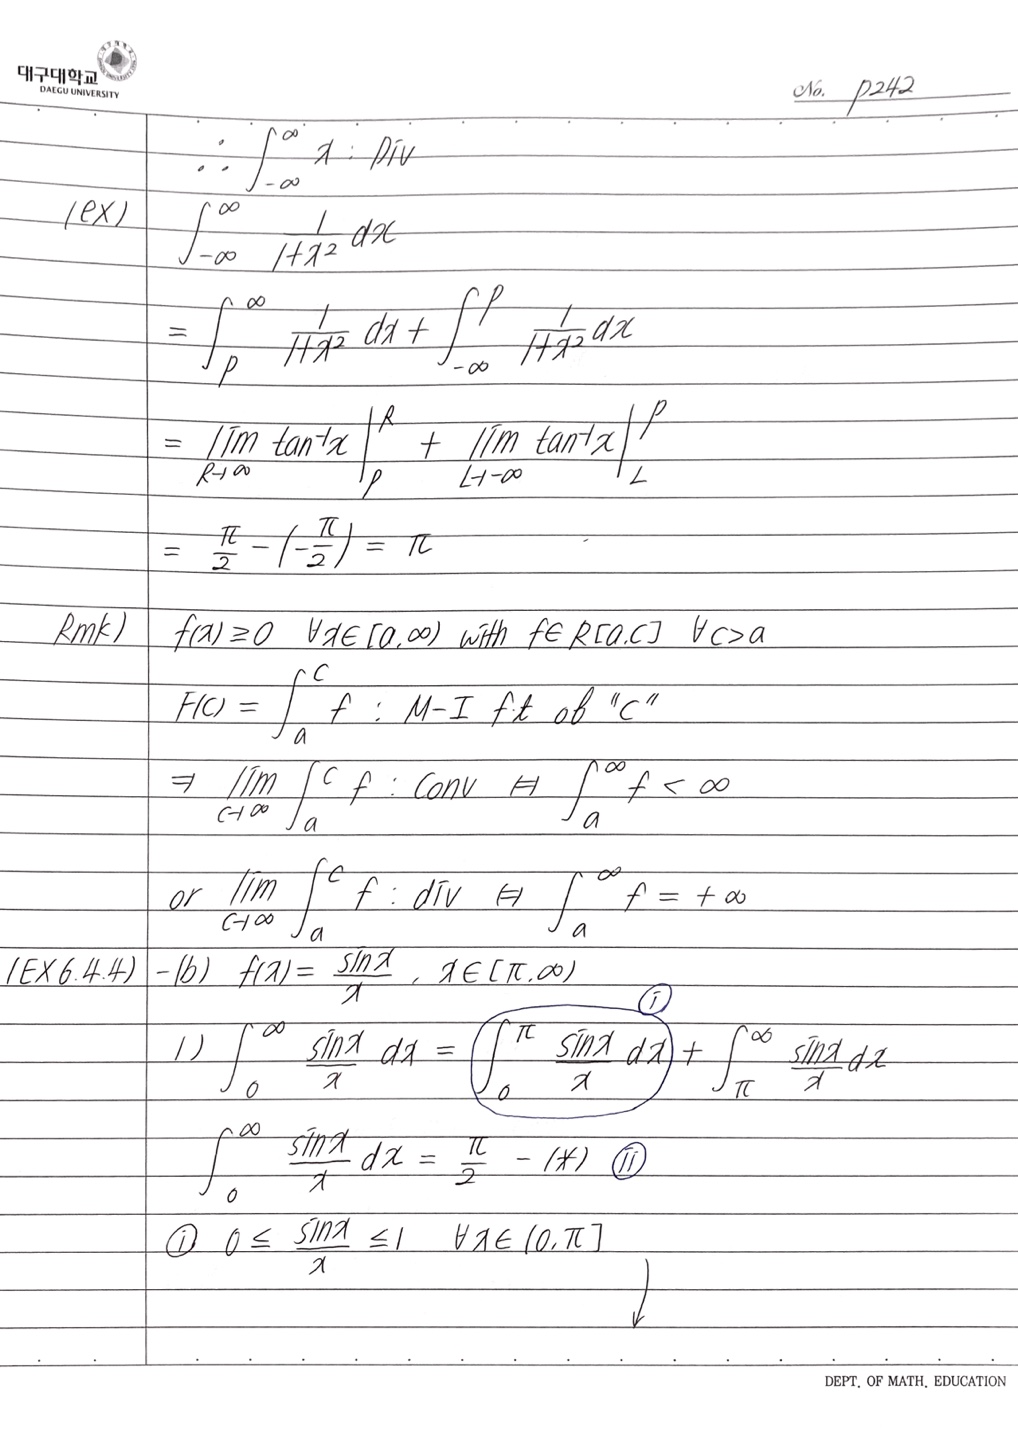 대구대학교
DAEGU UNIVERSITY
No. p242
∴ ∫_{-∞}^{∞} x : Div
(ex) ∫_{-∞}^{∞} 1/(1+x²) dx
= ∫_{p}^{∞} 1/(1+x²) dx + ∫_{-∞}^{p} 1/(1+x²) dx
= lim_{R→∞} tan⁻¹x |_{p}^{R} + lim_{L→-∞} tan⁻¹x |_{L}^{p}
= π/2 - (-π/2) = π
Rmk) f(x) ≥ 0 ∀x∈[a,∞) with f∈R[a,c] ∀c>a
F(c) = ∫_{a}^{c} f : M-I f.t of "c"
⇒ lim_{c→∞} ∫_{a}^{c} f : Conv ⇔ ∫_{a}^{∞} f < ∞
or lim_{c→∞} ∫_{a}^{c} f : div ⇔ ∫_{a}^{∞} f = +∞
(EX 6.4.4) -(b) f(x) = sinx/x , x∈[π,∞)
ⓘ
1) ∫_{0}^{∞} sinx/x dx = ∫_{0}^{π} sinx/x dx + ∫_{π}^{∞} sinx/x dx
∫_{0}^{∞} sinx/x dx = π/2 - (*) ⓘⓘ
ⓘ 0 ≤ sinx/x ≤ 1 ∀x∈(0,π]
↓
DEPT. OF MATH. EDUCATION